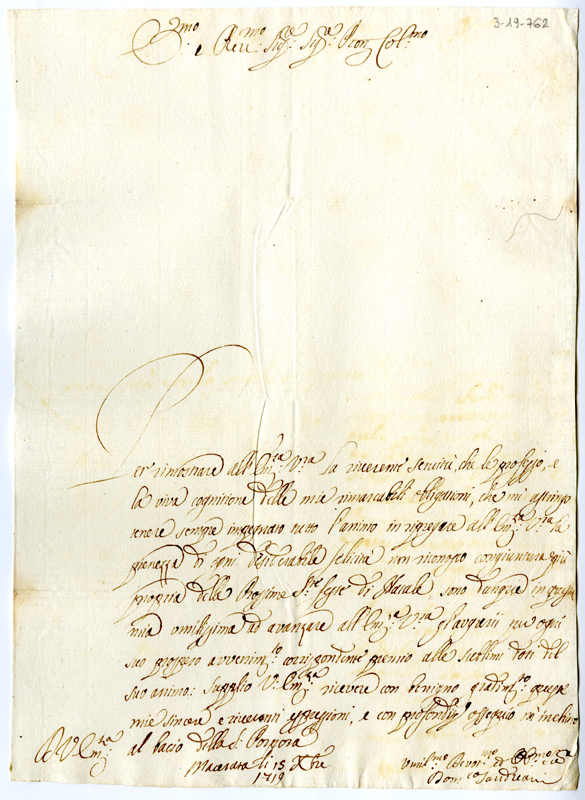 3-19-762
Em.mo e Rev.mo Sig.re Sig.re Pron Col.mo
Per rimostrare all'Em.za V.ra la riverente servitù, che le professo, e
la viva cognitione delle mie rimarcabili obligationi, che mi astringo
tenere sempre impegnato tutto l'animo in all'Em.za V.ra la
pienezza di ogni desiderabile felicità non riconosco congiuntura più
propria delle Prossime S.te Feste di Natale sono dunque in questa
mia umilissima ad avanzare all'Em.za V.ra gl'auguri ne ogni
suo prospero avvenim.to corrispondente premio alle doti del
suo animo: supplico V. Em.za ricevere con benigno gradim.to queste
mie sincere e riverenti espressioni, e con profondis.mo ossequio m'inchino
al bacio della S. Porpora
Di V. Em.za
Macerata li 15 Xbre
1719
Umil.mo Devot.mo et Obl.mo
Dom.co